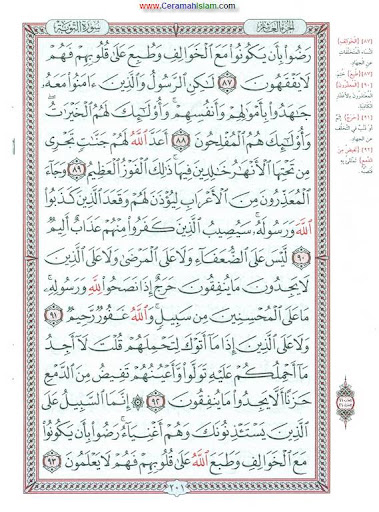 www.CeramahIslam.com
الجزء العاشر
سورة التوبة
رَضُوا۟ بِأَن يَكُونُوا۟ مَعَ ٱلْخَوَالِفِ وَطُبِعَ عَلَىٰ قُلُوبِهِمْ فَهُمْ
لَا يَفْقَهُونَ ٨٧ لَٰكِنِ ٱلرَّسُولُ وَٱلَّذِينَ ءَامَنُوا۟ مَعَهُۥ
جَٰهَدُوا۟ بِأَمْوَٰلِهِمْ وَأَنفُسِهِمْ ۚ وَأُو۟لَٰٓئِكَ لَهُمُ ٱلْخَيْرَٰتُ
وَأُو۟لَٰٓئِكَ هُمُ ٱلْمُفْلِحُونَ ٨٨ أَعَدَّ ٱللَّهُ لَهُمْ جَنَّٰتٍ تَجْرِى
مِن تَحْتِهَا ٱلْأَنْهَٰرُ خَٰلِدِينَ فِيهَا ۚ ذَٰلِكَ ٱلْفَوْزُ ٱلْعَظِيمُ ٨٩ وَجَآءَ
ٱلْمُعَذِّرُونَ مِنَ ٱلْأَعْرَابِ لِيُؤْذَنَ لَهُمْ وَقَعَدَ ٱلَّذِينَ كَذَبُوا۟
ٱللَّهَ وَرَسُولَهُۥ ۚ سَيُصِيبُ ٱلَّذِينَ كَفَرُوا۟ مِنْهُمْ عَذَابٌ أَلِيمٌ
٩٠ لَّيْسَ عَلَى ٱلضُّعَفَآءِ وَلَا عَلَى ٱلْمَرْضَىٰ وَلَا عَلَى ٱلَّذِينَ
لَا يَجِدُونَ مَا يُنفِقُونَ حَرَجٌ إِذَا نَصَحُوا۟ لِلَّهِ وَرَسُولِهِۦ ۚ
مَا عَلَى ٱلْمُحْسِنِينَ مِن سَبِيلٍ ۚ وَٱللَّهُ غَفُورٌ رَّحِيمٌ ٩١
وَلَا عَلَى ٱلَّذِينَ إِذَا مَآ أَتَوْكَ لِتَحْمِلَهُمْ قُلْتَ لَآ أَجِدُ
مَآ أَحْمِلُكُمْ عَلَيْهِ تَوَلَّوا۟ وَّأَعْيُنُهُمْ تَفِيضُ مِنَ ٱلدَّمْعِ
حَزَنًا أَلَّا يَجِدُوا۟ مَا يُنفِقُونَ ٩٢ ۞ إِنَّمَا ٱلسَّبِيلُ عَلَى
ٱلَّذِينَ يَسْتَـْٔذِنُونَكَ وَهُمْ أَغْنِيَآءُ ۚ رَضُوا۟ بِأَن يَكُونُوا۟
مَعَ ٱلْخَوَالِفِ وَطَبَعَ ٱللَّهُ عَلَىٰ قُلُوبِهِمْ فَهُمْ لَا يَعْلَمُونَ ٩٣
٢٠١
[٨٧] ﴿الخوالف﴾
النساء المتخلفات
عن الجهاد.
[٩٠] ﴿المعذرون﴾
المعتذرون بالأعذار
الكاذبة.
[٩١] ﴿حرج﴾ إثم
أو ذنب في التخلف
عن الجهاد.
[٩٢] ﴿تفيض من
الدمع﴾ تمتلئ به